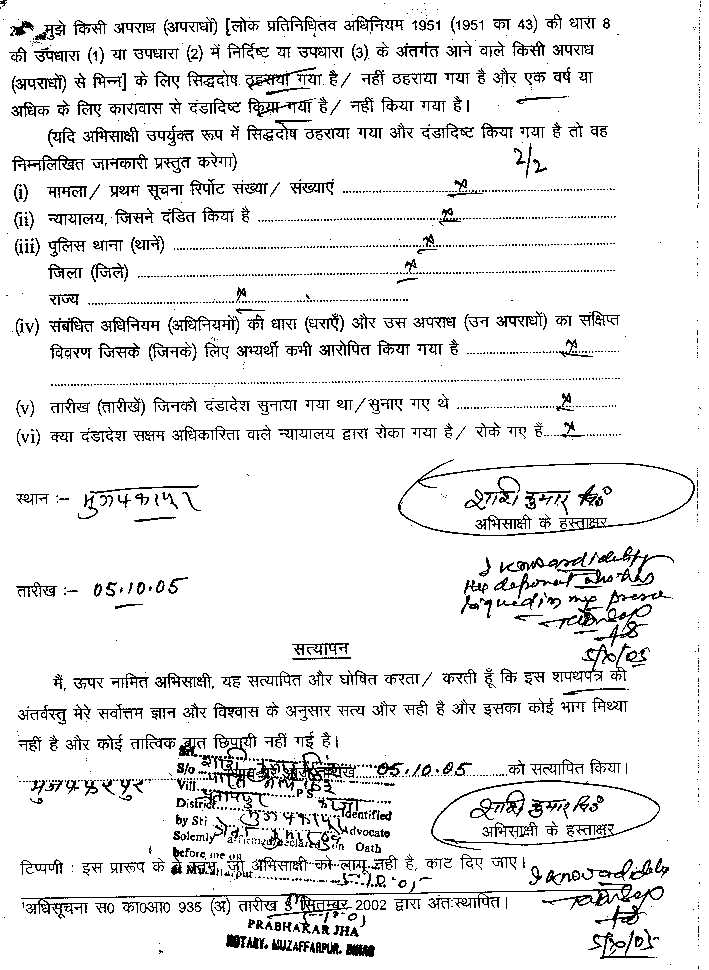 मुझे किसी अपराध (अपराधों) [लोक प्रतिनिधितव अधिनियम 1951 (1951 का 43) की धारा 8
की उपधारा (1) या उपधारा (2) में निर्दिष्ट या उपधारा (3) के अंतर्गत आने वाले किसी अपराध
(अपराधों) से भिन्न] के लिए सिद्धदोष ठहराया गया है/ नहीं ठहराया गया है और एक वर्ष या
अधिक के लिए कारावास से दंडादिष्ट किया गया है/ नहीं किया गया है।
(यदि अभिसाक्षी उपर्युक्त रूप में सिद्धदोष ठहराया गया और दंडादिष्ट किया गया है तो वह
निम्नलिखित जानकारी प्रस्तुत करेगा)
2/2
(i) मामला/ प्रथम सूचना रिर्पोट संख्या/ संख्याएं x
(ii) न्यायालय, जिसने दंडित किया है x
(iii) पुलिस थाना (थानें) x
जिला (जिले) x
राज्य x
(iv) संबंधित अधिनियम (अधिनियमों) की धारा (धराएँ) और उस अपराध (उन अपराधों) का संक्षिप्त
विवरण जिसके (जिनके) लिए अभ्यर्थी कभी आरोपित किया गया है x
(v) तारीख (तारीखें) जिनको दंडादेश सुनाया गया था/सुनाए गए थे x
(vi) क्या दंडादेश सक्षम अधिकारिता वाले न्यायालय द्वारा रोका गया है/ रोके गए हैं x
स्थान :- मुजफ्फरपुर शशि कुमार
अभिसाक्षी के हस्ताक्षर
I know and identify
the deponent who has
signed in my
तारीख :- 05.10.05
5/10/05
सत्यापन
मैं, ऊपर नामित अभिसाक्षी, यह सत्यापित और घोषित करता/ करती हूँ कि इस शपथपत्र की
अंतर्वस्तु मेरे सर्वोत्तम ज्ञान और विश्वास के अनुसार सत्य और सही है और इसका कोई भाग मिथ्या
नहीं है और कोई तात्विक बात छिपायी नहीं गई है।
मुजफ्फरपुर 05.10.05 को सत्यापित किया।
S/o
Vill P S
District Identified
by Sri Advocate
Solemnly on Oath
before me on
शशि कुमार
अभिसाक्षी के हस्ताक्षर
टिप्पणी : इस प्रारूप के वे जो अभिसाक्षी को लागू नहीं है, काट दिए जाए।
I know and
अधिसूचना स0 का0आ0 935 (अ) तारीख सितम्बर 2002 द्वारा अंतःस्थापित।
5/10/05
PRABHAKAR JHA
NOTARY, MUZAFFARPUR, BIHAR